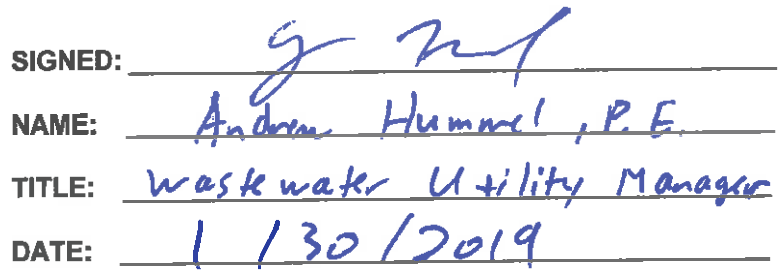 SIGNED:
NAME: Andrew Hummel, P.E.
TITLE: Wastewater Utility Manager
DATE: 1/30/2019